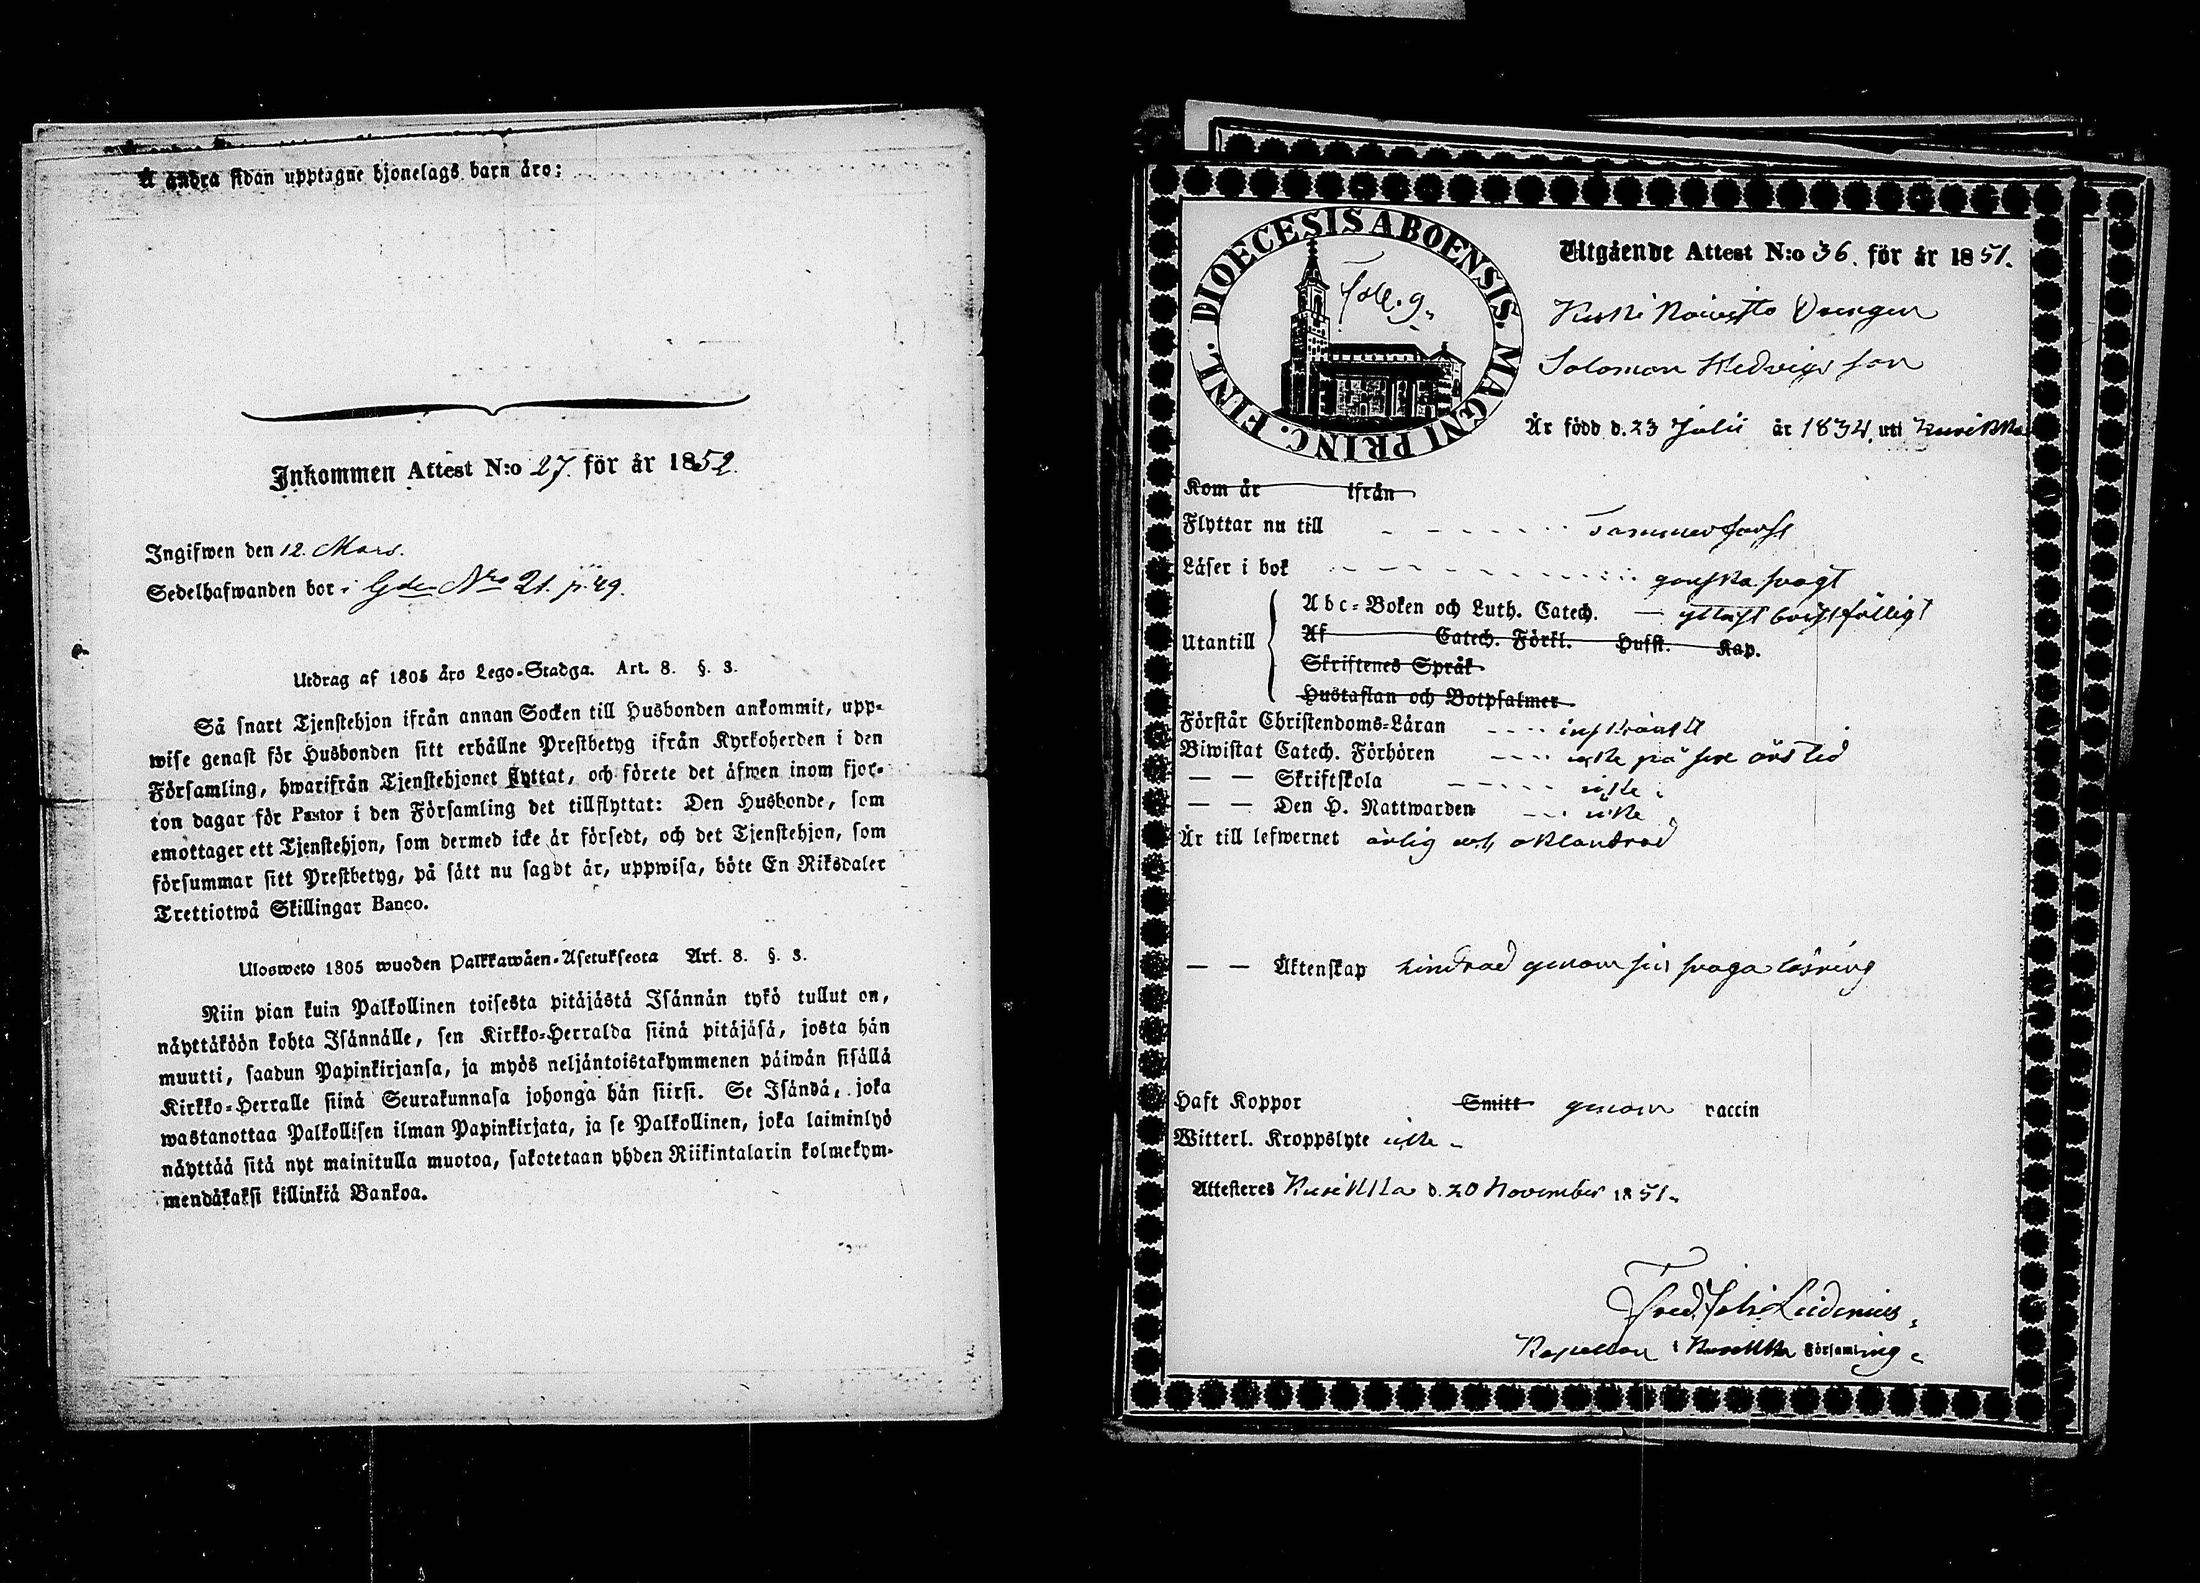 Å andra sidan upptagne hjonelags barn äro:
Inkommen Attest N:o 27. för år 1852.
Ingifwen den 12. Mars.
Sedelhafwanden bor i Gden Nro 21. p. 49.
Utdrag af 1805 års Lego-Stadga. Art. 8. §. 3.
Så snart Tjenstehjon ifrån annan Socken till Husbonden ankommit, upp-
wise genast för Husbonden sitt erhållne Prestbetyg ifrån Kyrkoherden i den
Församling, hwarifrån Tjenstehjonet flyttat, och förete det äfwen inom fjor-
ton dagar för Pastor i den Församling det tillflyttat: Den Husbonde, som
emottager ett Tjenstehjon, som dermed icke är försedt, och det Tjenstehjon, som
försummar sitt Prestbetyg, på sätt nu sagdt är, uppwisa, böte En Riksdaler
Trettiotwå Skillingar Banco.
Ulosweto 1805 wuoden Palkkawäen-Asetuksesta Art. 8. §. 3.
Niin pian kuin Palkollinen toisesta pitäjästä Isännän tykö tullut on,
näyttäköön kohta Isännälle, sen Kirkko-Herralda siinä pitäjäsä, josta hän
muutti, saadun Papinkirjansa, ja myös neljäntoistakymmenen päiwän sisällä
Kirkko-Herralle siinä Seurakunnasa johonga hän siirsi. Se Isändä, joka
wastanottaa Palkollisen ilman Papinkirjata, ja se Palkollinen, joka laiminlyö
näyttää sitä nyt mainitulla muotoa, sakotetaan yhden Riikintalarin kolmekym-
mendäkaksi killinkiä Bankoa.
DIOECESIS ABOENSIS. MAGNI PRINC. FINL.
Foll. 9.
Utgående Attest N:o 36. för år 1851.
Koivisto Drengen
Salomon Hedvigs son
Är född d. 23 Julii år 1834, uti Kuri
Kom år ifrån
Flyttar nu till Tammerfors
Läser i bok ganska svagt
Utantill
Abc-Boken och Luth. Catech. — ytterst bristfälligt
Af Catech. Förkl. Hufst. Kap.
Skriftenes Språk
Hustaflan och Botpsalmer
Förstår Christendoms-Läran inskränkt
Biwistat Catech. Förhören icke på sex års tid
— — Skriftskola icke
— — Den H. Nattwarden icke
Är till lefwernet ärlig och oklandrad
— — Äktenskap hindrad genom sin svaga läsning
Haft Koppor Smitt genom vaccin
Witterl. Kroppslyte icke
Attesteres d. 20 November 1851.
Fred. Joh. Lidenius
Kapellan i Församling